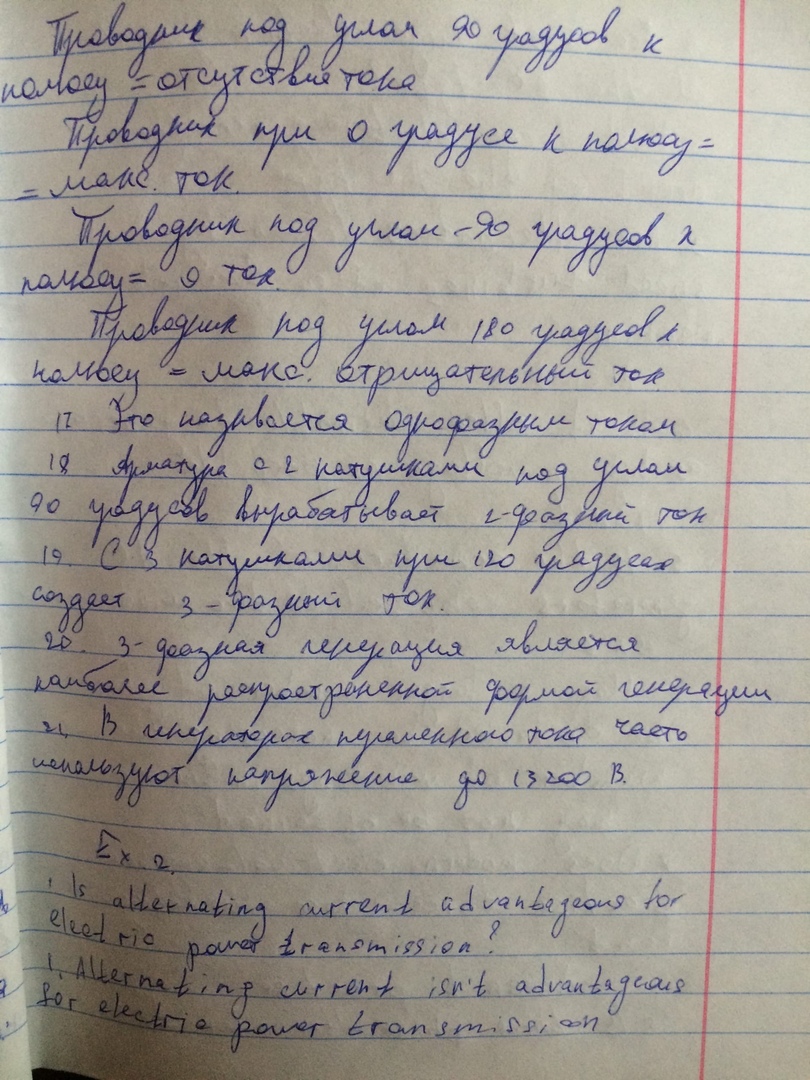 Проводник под углом 90 градусов к
полюсу = отсутствие тока
Проводник при 0 градусе к полюсу =
= макс. ток.
Проводник под углом -90 градусов к
полюсу = 0 ток.
Проводник под углом 180 градусов к
полюсу = макс. отрицательный ток
17 Это называется однофазным током
18 Арматура с 2 катушками под углом
90 градусов вырабатывает 2-фазный ток
19. С 3 катушками при 120 градусах
создает 3-фазный ток.
20. 3-фазная генерация является
наиболее распространенной формой генерации
21. В генераторах переменного тока часто
используют напряжение до 13200 В.
Ex 2.
1 Is alternating current advantageous for
electric power transmission?
1. Alternating current isn't advantageous
for electric power transmission